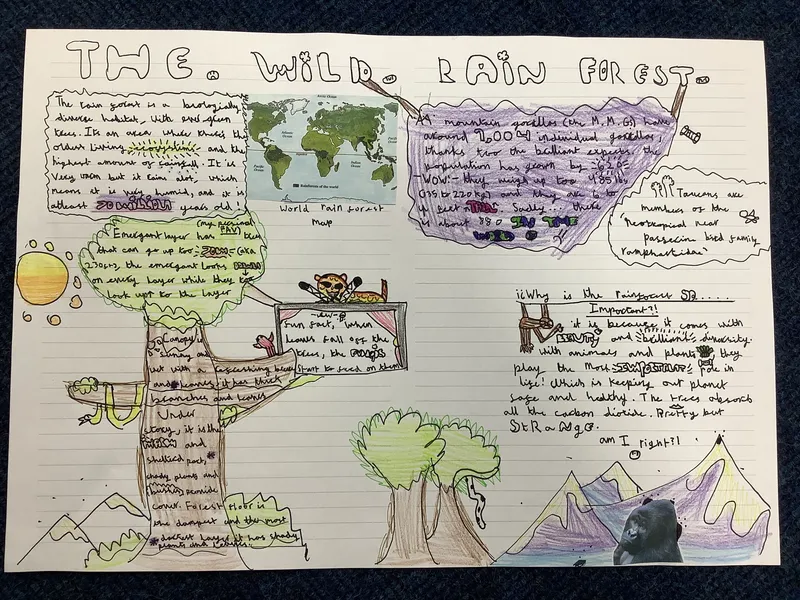 THE. WiLD. RAiN FOREST.
The rain forest is a biologically
diverse habitat, with
trees. It's an area where there's the
oldest living ecosystems and the
highest amount of rainfall. It is
very warm but it rains alot, which
means it is very humid, and it is
atleast million years old!
World rain forest
map
A mountain gorillas (the M.M.G) have
around 1,000 individual gorillas
thanks too the brilliant experts the
population has grown by
-WOW!- they weigh up too 485 lbs
to 220kg) and they are up to
feet TALL Sadly, there
is about 880 IN THE
WILD
Toucans are
members of the
"Neotropical near
passerin bird family
ramphastidae"
(my personal
FAV)
Emergent layer has trees
that can go up too (aka
230ft), the emergent looks
on every layer while they too
look up to the layer
Fun fact, when
leaves fall off the
trees, the
start to feed on them
Canopy
sunny and
but with
and leaves, it has thick
branches and leaves
Under
story, it is the
and
sheltered part,
shady plants and
provide
cover. Forest floor is
the dampest and the most
darkest layer it has shady
plants and
Why is the rainforest SO.....
Important?!
it is because it comes with
BEAUTY and brilliant diversity.
with animals and plants they
play the most IMPORTANT role in
life! Which is keeping our planet
safe and healthy. The trees absorb
all the carbon dioxide. Pretty but
StRaNgE.
am I right?!